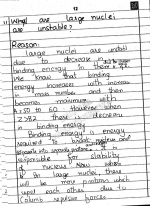 12
What are large nuclei
are unstable?
Reason:
large nuclei are unstable
due to decrease in
binding energy in them
We know that binding
energy increases with increase
in mass number and then
becomes maximum with
A = 50 to 80. However when
Z > 82 there is decrease
in binding energy
Binding energy is energy
required to break
into separate
responsible for stability
of nucleus. Now when
large nuclei, there
will be more protons which
repel each other due to
Coulomb repulsive forces